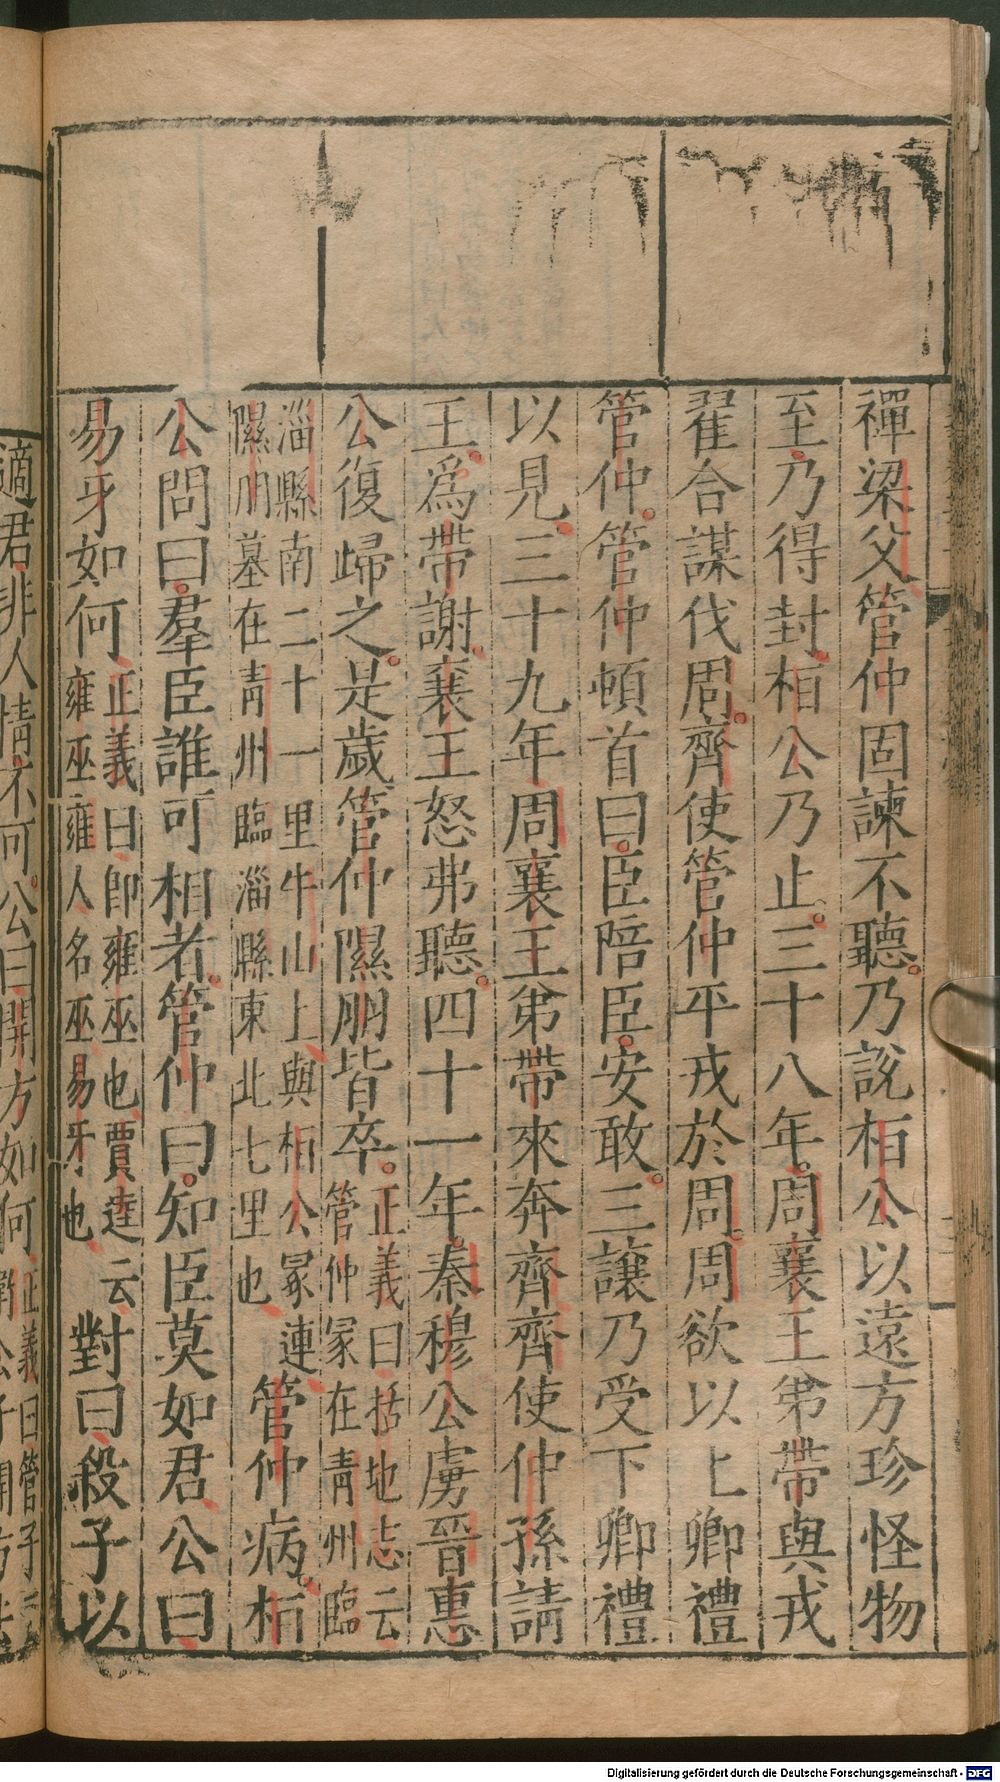 禪梁父管仲固諫不聽乃說桓公以遠方珍怪物
至乃得封桓公乃止三十八年周襄王弟帶與戎
翟合謀伐周齊使管仲平戎於周周欲以上卿禮
管仲管仲頓首曰臣陪臣安敢三讓乃受下卿禮
以見三十九年周襄王弟帶來奔齊齊使仲孫請
王爲帶謝襄王怒弗聽四十一年秦穆公虜晉惠
公復歸之是歲管仲隰朋皆卒正義曰括地志云管仲冢在青州臨
淄縣南二十一里牛山上與桓公冢連隰朋墓在青州臨淄縣東北七里也管仲病桓
公問曰羣臣誰可相者管仲曰知臣莫如君公曰
易牙如何正義曰即雍巫也賈逵云雍巫雍人名巫易牙也對曰殺子以
適君非人情不可公曰開方如何
Digitalisierung gefördert durch die Deutsche Forschungsgemeinschaft - DFG